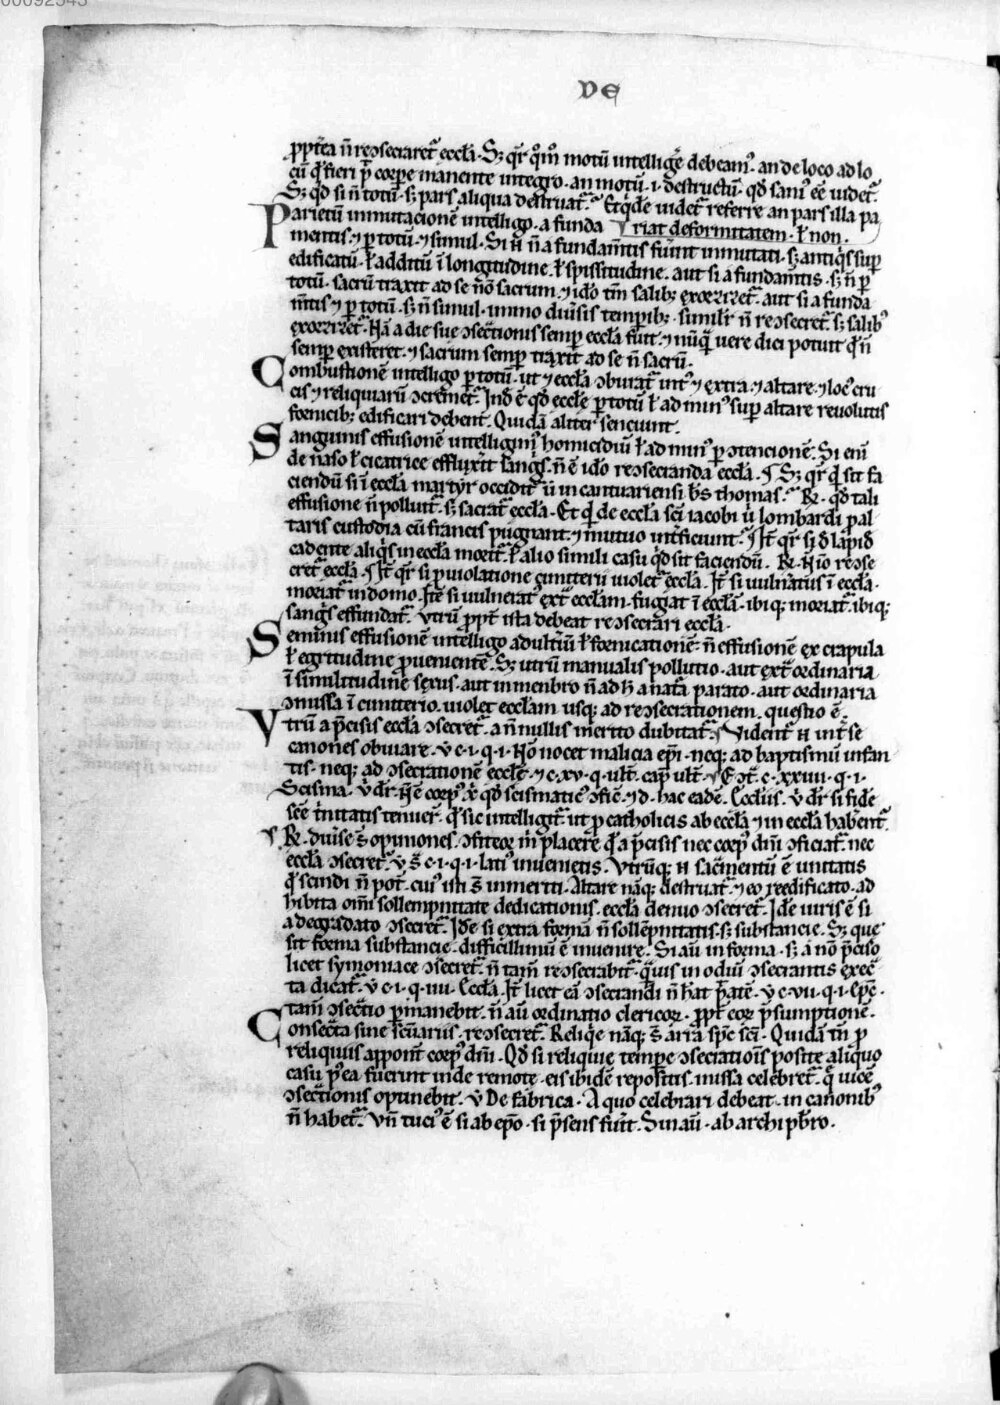 00092543
DE
ꝓpt̄ea n̄ reↄsecraret᷑ eccl̄a. Sꝫ qr̄ qm̄ motū intellige᷑ debeam᷒. an de loco ad lo
cū qd̄ fieri p̄t corꝑe manente integro. an motū. i. destructū. qd̄ sani᷒ eē uidet᷑.
Sꝫ qd̄ si n̄ totū. sꝫ pars aliqua destruat᷑. Et qd̄e uidet᷑ referre an pars illa pa
Parietū inmutacionē intelligo. a funda riat deformitatem. ł non.
mentis. ⁊ ꝑ totū. ⁊ simul. Si .n. n̄ a fundam̄tis fūint inmutati. sꝫ antiq̄s suꝑ
edificatū. ł additū ī longitudine. ł spissitudine. aut si a fundam̄tis. sꝫ n̄ ꝑ
totū. sacrū traxit ad se nō sacrum. ⁊ idō tm̄ salibꝫ exorzizet᷑. aut si a funda
m̄tis ⁊ ꝑ totū. sꝫ n̄ simul. immo diūsis temꝑibꝫ. similr̄ n̄ reↄsecret᷑. sꝫ salibꝫ
exorzizet᷑. Nā a die sue ↄsecr̄tionis semꝑ eccl̄a fuit. ⁊ nūq̄ uere dici potuit qd̄ n̄
semꝑ existeret. ⁊ sacrum semꝑ traxit ad se n̄ sacrū.
Combustionē intelligo ꝑ totū. ut ⁊ eccl̄a ↄburat᷑ int᷒ ⁊ extra. ⁊ altare. ⁊ loc᷒ cru
cis ⁊ reliquiarū ↄcremet᷑. Ind̄ ē qd̄ eccl̄e ꝑ totū ł ad min᷒ suꝑ altare reuolutis
fornicibꝫ edificari debent. Quidā aliter senciunt.
Sanguinis effusionē intelligim᷒ homicidiū ł ad min᷒ ꝑ ↄtencionē. Si eni
de naso ł cicatrice effluxīt sang᷒s. n̄ ē idō reↄsecranda eccl̄a. ¶ Sꝫ qr̄ qd̄ sit fa
ciendū si ī eccl̄a martyr occidit᷑ ū in cantuariensi. bs̄ thomas. R̄. qd̄ tali
effusione n̄ polluit᷑. sꝫ sacrat᷑ eccl̄a. Et qd̄ de eccl̄a sc̄i iacobi ū lombardi pal
taris custodia cū francis pugnant. ⁊ mutuo int᷑ficiunt. ¶ It̄ qr̄ si d̄ lapid̄
cadente aliq̄s in eccl̄a morit᷑. ł alio simili casu qd̄ sit faciendū. R̄. Nō reↄse
cret᷑ eccl̄a. ¶ It̄ qr̄ si ꝑ uiolatione cimiterii uiolet᷑ eccl̄a. It̄ si uulnatus ī eccl̄a.
moriat᷑ in domo. Itē si uulnerat᷒ ext᷑ eccl̄am. fugiat ī eccl̄a. ibiqꝫ moriat᷑. ibiqꝫ
sang᷒s effundat᷑. Vtrū ꝓpt᷑ ista debeat reↄsecrari eccl̄a.
Seminis effusionē intelligo adultiū ł fornicationē. n̄ effusionē ex crapula
ł egritudine ꝓuenientē. Sꝫ utrū manualis pollutio. aut ext᷑ ordinaria
ī similitudinē sexus. aut in menbro n̄ ad h̄ a nat᷑a parato. aut ordinaria
ↄmissa ī cimiterio. uiolet eccl̄am usqꝫ ad reↄsecrationem. questio ē.
Vtrū a p̄cisis eccl̄a ↄsecret᷑. a nōnullis merito dubitat᷑. Uident᷑ .n. int᷑ se
canones obuiare. v̄. c. i. q. i. Nō nocet malicia ep̄i. neqꝫ ad baptismū infan
tis. neqꝫ ad ↄsecrationē eccl̄e. ⁊ c. xv. q. ult. cap̄. ult. Ecōt᷑. c. xxiiii. q. i.
Scisma. v̄ dr̄. Nē corp᷒ x̄ qd̄ scismatic᷒ ↄfic̄. ⁊ d. hac eadē. Ecclūs. v̄ dr̄. si fidē
scē t̄nitatis tenuer̄. qd̄ sic intelligit᷑ ut ꝓ catholicis ab eccl̄a ⁊ in eccl̄a habent᷑.
¶ R̄. diūse s̄ opiniones. ↄfiteor m̄ placere. qd̄ a p̄cisis nec corp᷒ dn̄i ↄficiat᷑. nec
eccl̄a ↄsecret᷑. v̄ s̄. c. i. q. i. lati᷒ inuenietis. Vtrūqꝫ .n. sacr̄mentū ē unitatis
qd̄ scindi n̄ pot᷑. cui᷒ isti s̄ inmeriti. Altare nāqꝫ destruat᷑. ⁊ eo reedificato. ad
hibita omī sollempnitate dedicationis. eccl̄a denuo ↄsecret᷑. Idē iuris ē si
a degradato ↄsecret᷑. Idē si extra formā n̄ sollēpnitatis. sꝫ substancie. Sꝫ que
sit forma substancie. difficillimū ē inuenire. Si aū in forma. sꝫ a nō p̄ciso
licet symoniace ↄsecret᷑. n̄ tam̄ reↄsecrabit᷑. q̄uis in odiū ↄsecrantis exec᷑
ta dicat᷑. v̄. c. i. q. iiii. Eccl̄a. It̄ licet eā ↄsecrandi n̄ hāt p̄atē. v̄. c. vii. q. i. Ep̄c.
tam̄ ↄsecr̄tio ꝑmanebit. n̄ aū ordinatio clericoꝝ. ꝓpt᷑ eoꝝ p̄sumptionē.
Consecr̄ta sine sc̄uariis. reↄsecret᷑. Reliq̄e nāqꝫ s̄ arra sp̄e sc̄i. Quidā tn̄ ꝓ
reliquiis apponūt corp᷒ dn̄i. Qd̄ si reliquie tempe ↄsecratiois̄ posite aliquo
casu p̄ea fuerint inde remote. eis ibidē repos̄itis. missa celebret᷑. q̄ uicē
ↄsecr̄tionis optinebit. v̄ De fabrica. A quo celebrari debeat. in canonibꝫ
n̄ habet᷑. Vn̄ tuci᷒ ē si ab ep̄o. si p̄sens fuīt. Sin aū. ab archip̄br̄o.